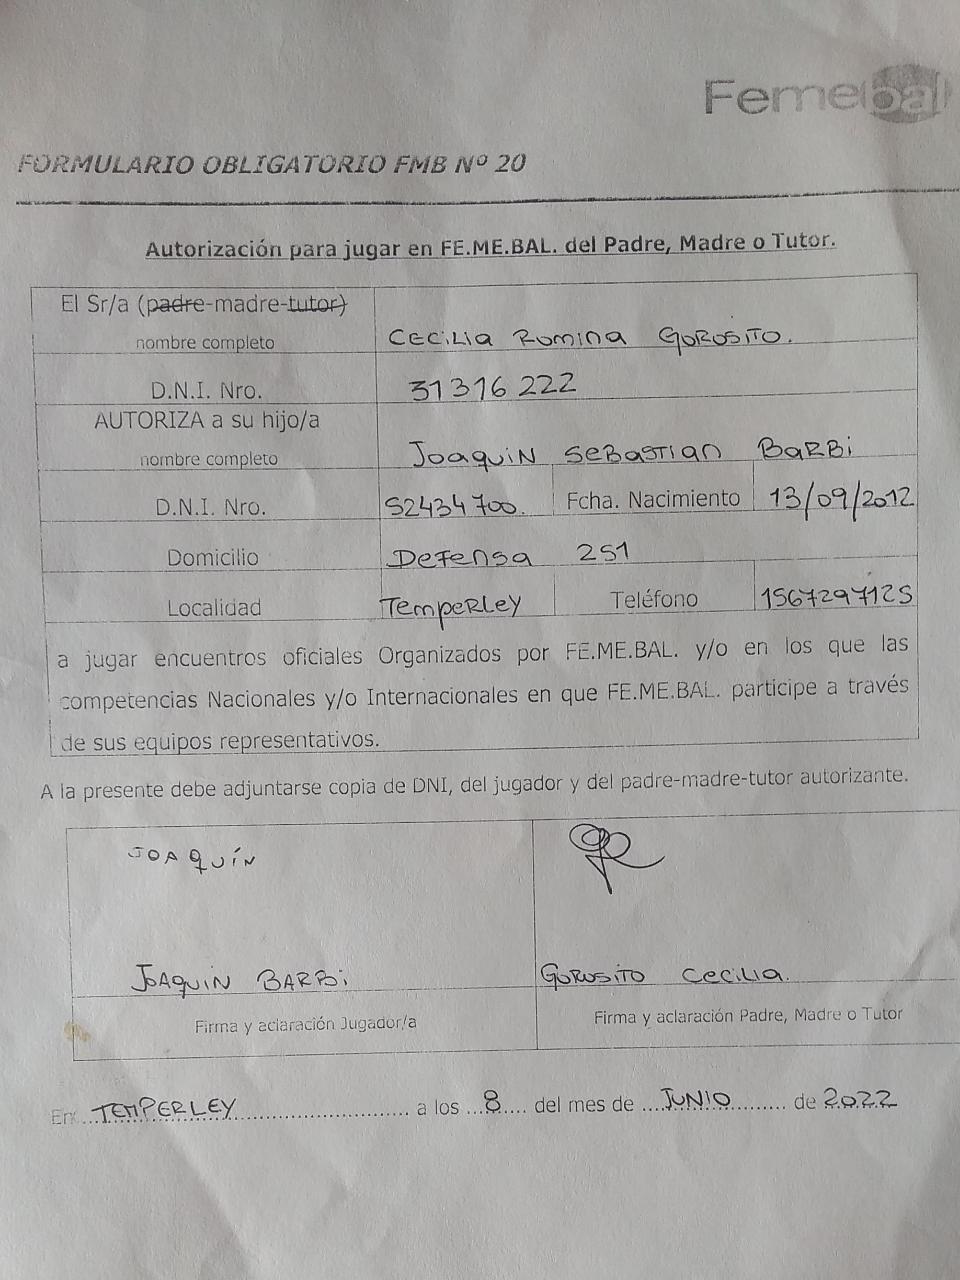 Femebal
FORMULARIO OBLIGATORIO FMB Nº 20
Autorización para jugar en FE.ME.BAL. del Padre, Madre o Tutor.
El Sr/a (padre-madre-tutor)
nombre completo
CECILIA ROMINA GOROSITO.
D.N.I. Nro. 31316222
AUTORIZA a su hijo/a
nombre completo
JOAQUIN SEBASTIAN BARBI
D.N.I. Nro. 52434700. Fcha. Nacimiento 13/09/2012
Domicilio DEFENSA 251
Localidad TEMPERLEY Teléfono 1567297125
a jugar encuentros oficiales Organizados por FE.ME.BAL. y/o en los que las
competencias Nacionales y/o Internacionales en que FE.ME.BAL. participe a través
de sus equipos representativos.
A la presente debe adjuntarse copia de DNI, del jugador y del padre-madre-tutor autorizante.
JOAQUÍN
JOAQUIN BARBI GOROSITO CECILIA.
Firma y aclaración Jugador/a Firma y aclaración Padre, Madre o Tutor
En TEMPERLEY a los 8 del mes de JUNIO de 2022